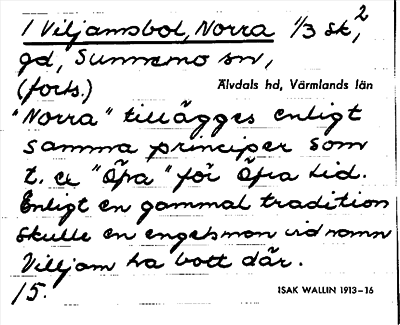 1 Viljamsbol, Norra 1/3 sk, 2
gd, Sunnemo sn,
(forts.) Älvdals hd, Värmlands län
"Norra" tillägges enligt
samma principer som
t. ex "Öfra" för Öfra Lid.
Enligt en gammal tradition
skulle en engelsman vid namn
Villjam ha bott där.
15. ISAK WALLIN 1913–16